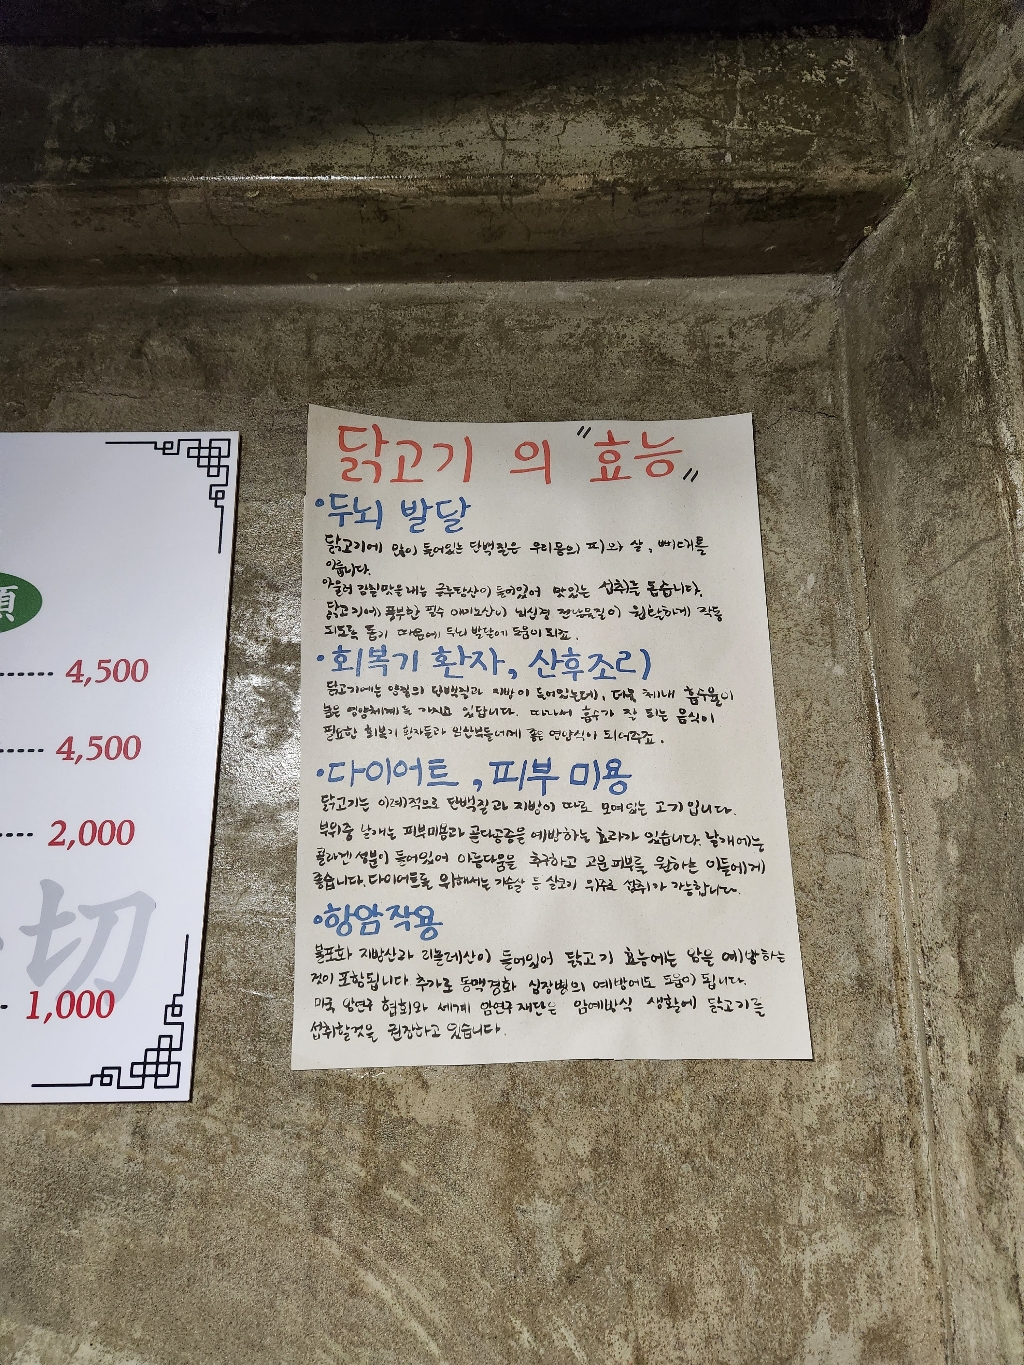 類
4,500
4,500
2,000
切
1,000
닭고기 의 "효능"
•두뇌 발달
닭고기에 많이 들어있는 단백질은 우리몸의 피와 살, 뼈대를
이룹니다.
아울러 감칠맛을내는 글루탐산이 들어있어 맛있는 섭취를 돕습니다.
닭고기에 풍부한 필수 아미노산이 뇌신경 전달물질이 원활하게 작동
되도록 돕기 때문에 두뇌 발달에 도움이 되죠.
•회복기 환자, 산후조리
닭고기에는 양질의 단백질과 지방이 들어있는데, 더욱 체내 흡수율이
높은 영양체계를 가지고 있답니다. 따라서 흡수가 잘 되는 음식이
필요한 회복기 환자들과 임산부들에게 좋은 영양식이 되어주죠.
•다이어트, 피부 미용
닭고기는 이례적으로 단백질과 지방이 따로 모여있는 고기입니다.
부위중 날개는 피부미용과 골다공증을 예방하는 효과가 있습니다. 날개에는
콜라겐 성분이 들어있어 아름다움을 추구하고 고운 피부를 원하는 이들에게
좋습니다. 다이어트를 위해서는 가슴살 등 살코기 위주로 섭취가 가능합니다.
•항암작용
불포화 지방산과 리놀레산이 들어있어 닭고기 효능에는 암을 예방하는
것이 포함됩니다 추가로 동맥경화 심장병의 예방에도 도움이 됩니다.
미국 암연구 협회와 세계 암연구 재단은 암예방식 생활에 닭고기를
섭취할것을 권장하고 있습니다.